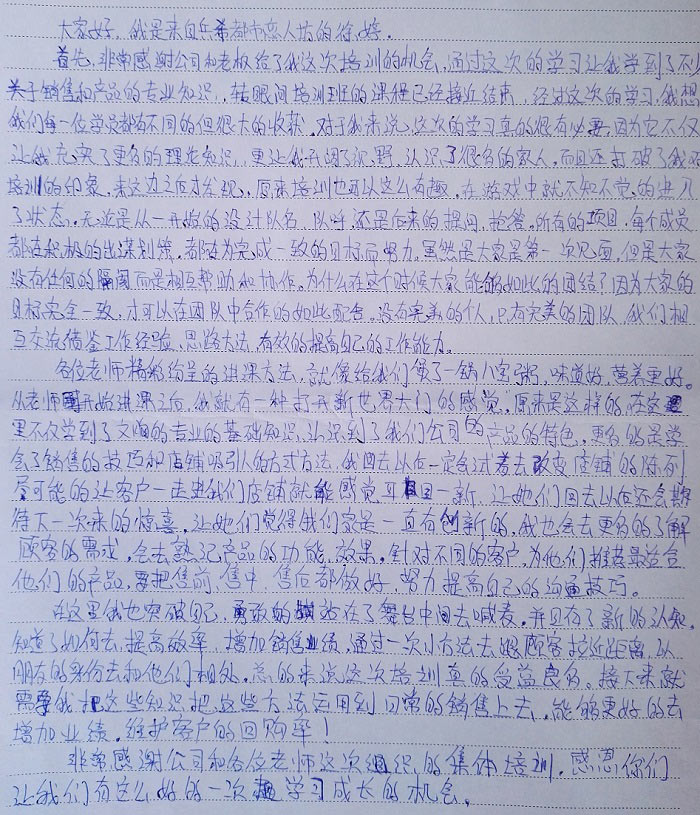 大家好，我是来自乐都都市恋人坊的徐婷。
首先，非常感谢公司和老板给了我这次培训的机会，通过这次的学习让我学到了不少
关于销售和产品的专业知识，转眼间培训班的课程已经接近结束，经过这次的学习，我想
我们每一位学员都有不同的但很大的收获。对于我来说，这次的学习真的很有必要，因为它不仅
让我充实了更多的理论知识，更让我开阔了视野，认识了很多的家人，而且还打破了我对
培训的印象，来这边之后才发现，原来培训也可以这么有趣，在游戏中就不知不觉的进入
了状态，无论是从一开始的设计队名，队呼还是后来的提问，抢答，所有的项目，每个成员
都在积极的出谋划策，都在为完成一致的目标而努力，虽然是大家是第一次见面，但是大家
没有任何的隔阂而是相互帮助和协作。为什么在这个时候大家能够如此的团结？因为大家的
目标完全一致，才可以在团队中合作的如此配合，没有完美的个人，只有完美的团队，我们相
互交流借鉴工作经验，思路方法，有效的提高自己的工作能力。
各位老师精彩纷呈的讲课方法，就像给我们煲了一锅八宝粥，味道好，营养更好。
从老师开始讲课之后，我就有一种打开新世界大门的感觉，原来是这样的，在这
里不仅学到了文胸的专业的基础知识，认识到了我们公司的产品的特色，更多的是学
会了销售的技巧和店铺吸引人的方式方法，我回去以后一定会试着去改变店铺的陈列
尽可能的让客户一走进我们店铺就能感觉耳目一新，让她们回去以后还会期
待下一次来的惊喜，让她们觉得我们家是一直有创新的，我也会去更多的了解
顾客的需求，会去熟记产品的功能，效果。针对不同的客户，为他们推荐最适合
他们的产品，要把售前，售中，售后都做好，努力提高自己的沟通技巧。
在这里我也突破自己，勇敢的站在了舞台中间去喊麦，并且有了新的认知，
知道了如何去提高效率，增加销售业绩，通过一次小方法去跟顾客拉近距离，以
朋友的身份去和他们相处，总的来说这次培训真的受益良多。接下来就
需要我把这些知识把这些方法运用到日常的销售上去，能够更好的去
增加业绩，维护客户的回购率！
非常感谢公司和各位老师这次组织的集体培训，感恩你们
让我们有这么好的一次学习成长的机会。